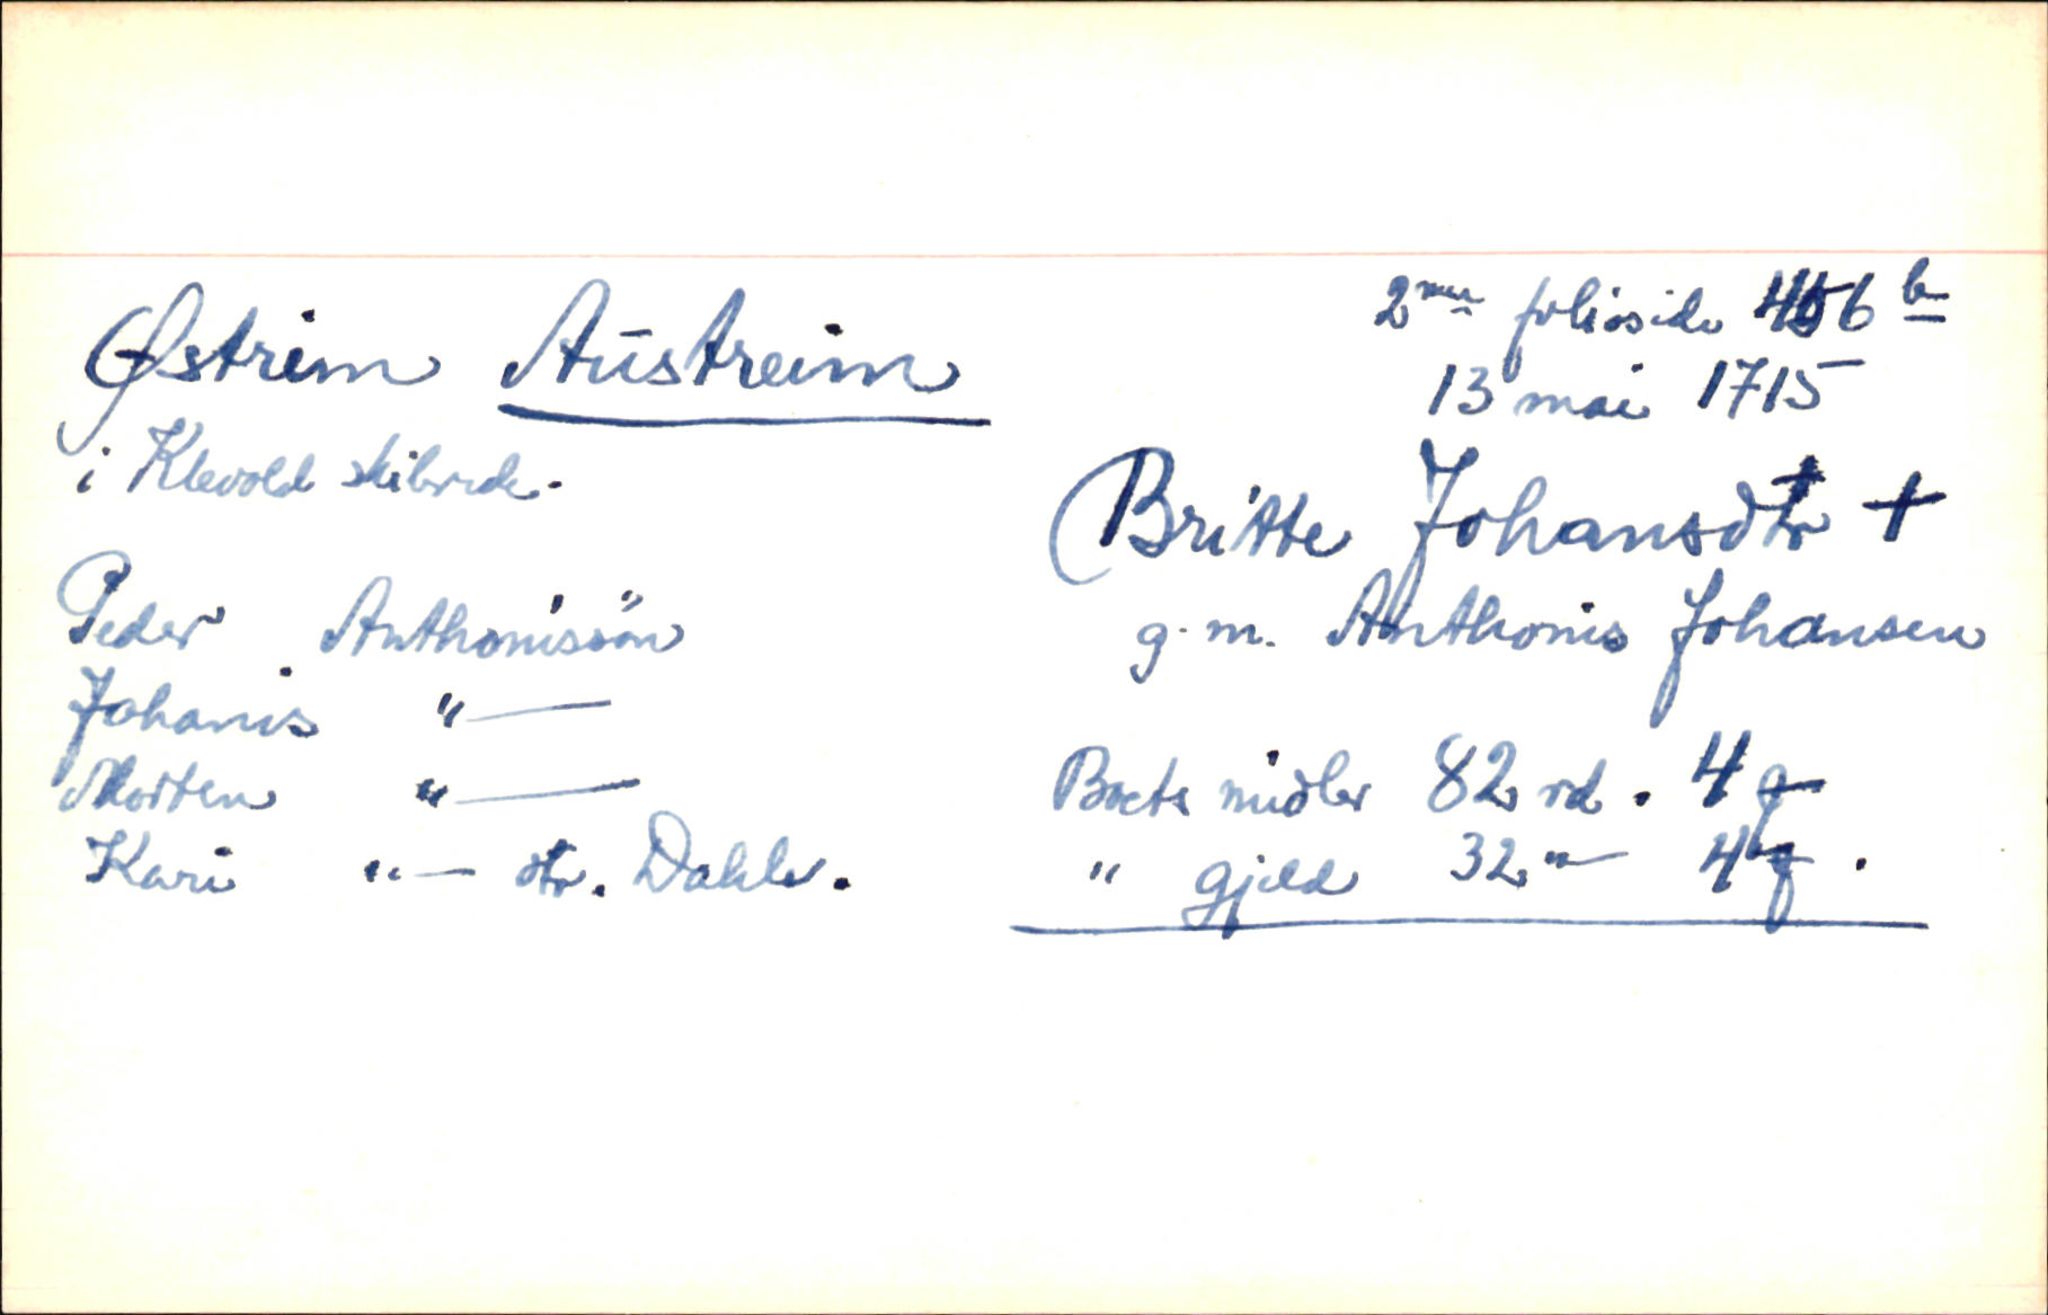 Østrim Austreim
i Klevold skibrede.
Peder Anthonissön
Johanis "—
Morten "—
Kari "— dtr. Dahle.
2nen folioside 456 b
13 mai 1715
Britte Johansdtr +
g. m. Anthonis Johansen
Boets midler 82 rd. 4 ƒ
" gjeld 32 "— 4 ƒ.